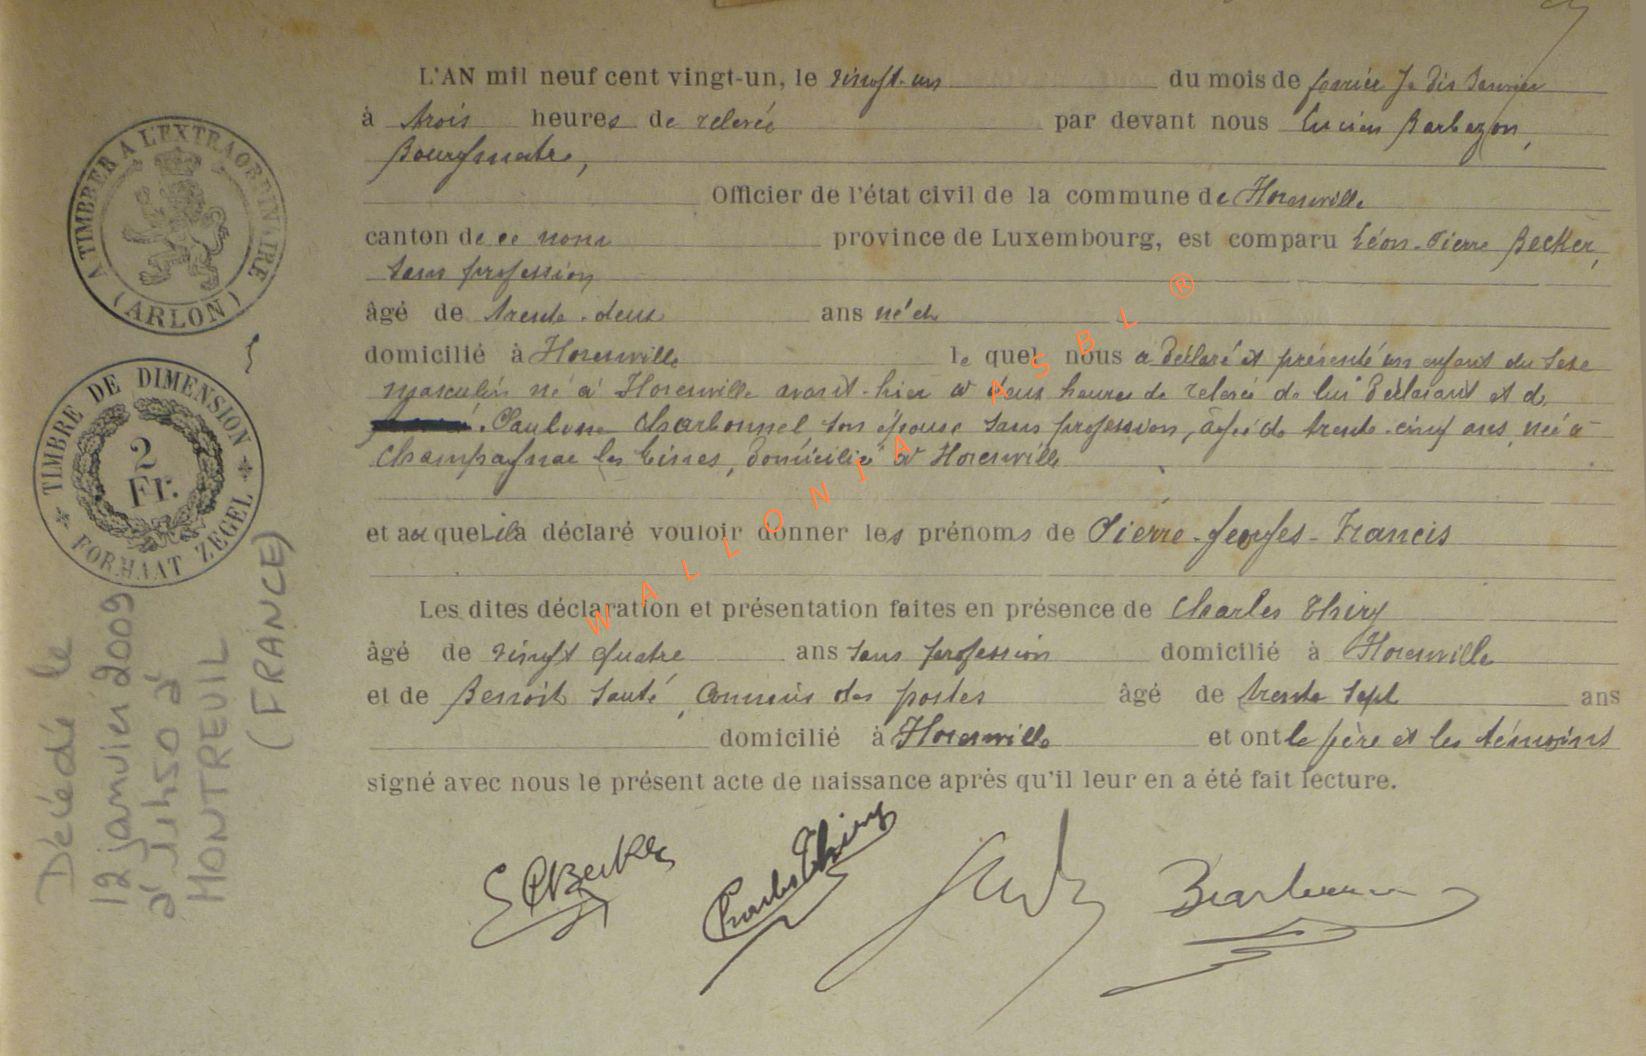 L'AN mil neuf cent vingt-un, le vingt-un du mois de janvier Je dis Janvier
à trois heures de relevée par devant nous Lucien Barbazon,
Bourgmestre,
Officier de l'état civil de la commune de Florenville
canton de ce nom province de Luxembourg, est comparu Léon-Pierre Becker,
sans profession
âgé de trente-deux ans né et
domicilié à Florenville le quel nous a déclaré et présenté un enfant du sexe
masculin né à Florenville avant-hier à deux heures de relevée de lui déclarant et de
Charbonnel son épouse sans profession, âgée de trente-cinq ans, née à
Champagnac les Mines, domiciliée à Florenville
et auquel il a déclaré vouloir donner les prénoms de Pierre-Georges-Francis
Les dites déclaration et présentation faites en présence de Charles Thiry
âgé de vingt quatre ans sans profession domicilié à Florenville
et de Benoit Santé, Commis des postes âgé de trente sept ans
domicilié à Florenville et ont le père et les témoins
signé avec nous le présent acte de naissance après qu'il leur en a été fait lecture.
LPBecker Charles Thiry
A TIMBRER A L'EXTRAORDINAIRE
(ARLON)
TIMBRE DE DIMENSION
2
Fr.
FORMAAT ZEGEL
Décédé le
12 janvier 2009
à 11h50 à
MONTREUIL
(FRANCE)
WALLONIA ASBL ®